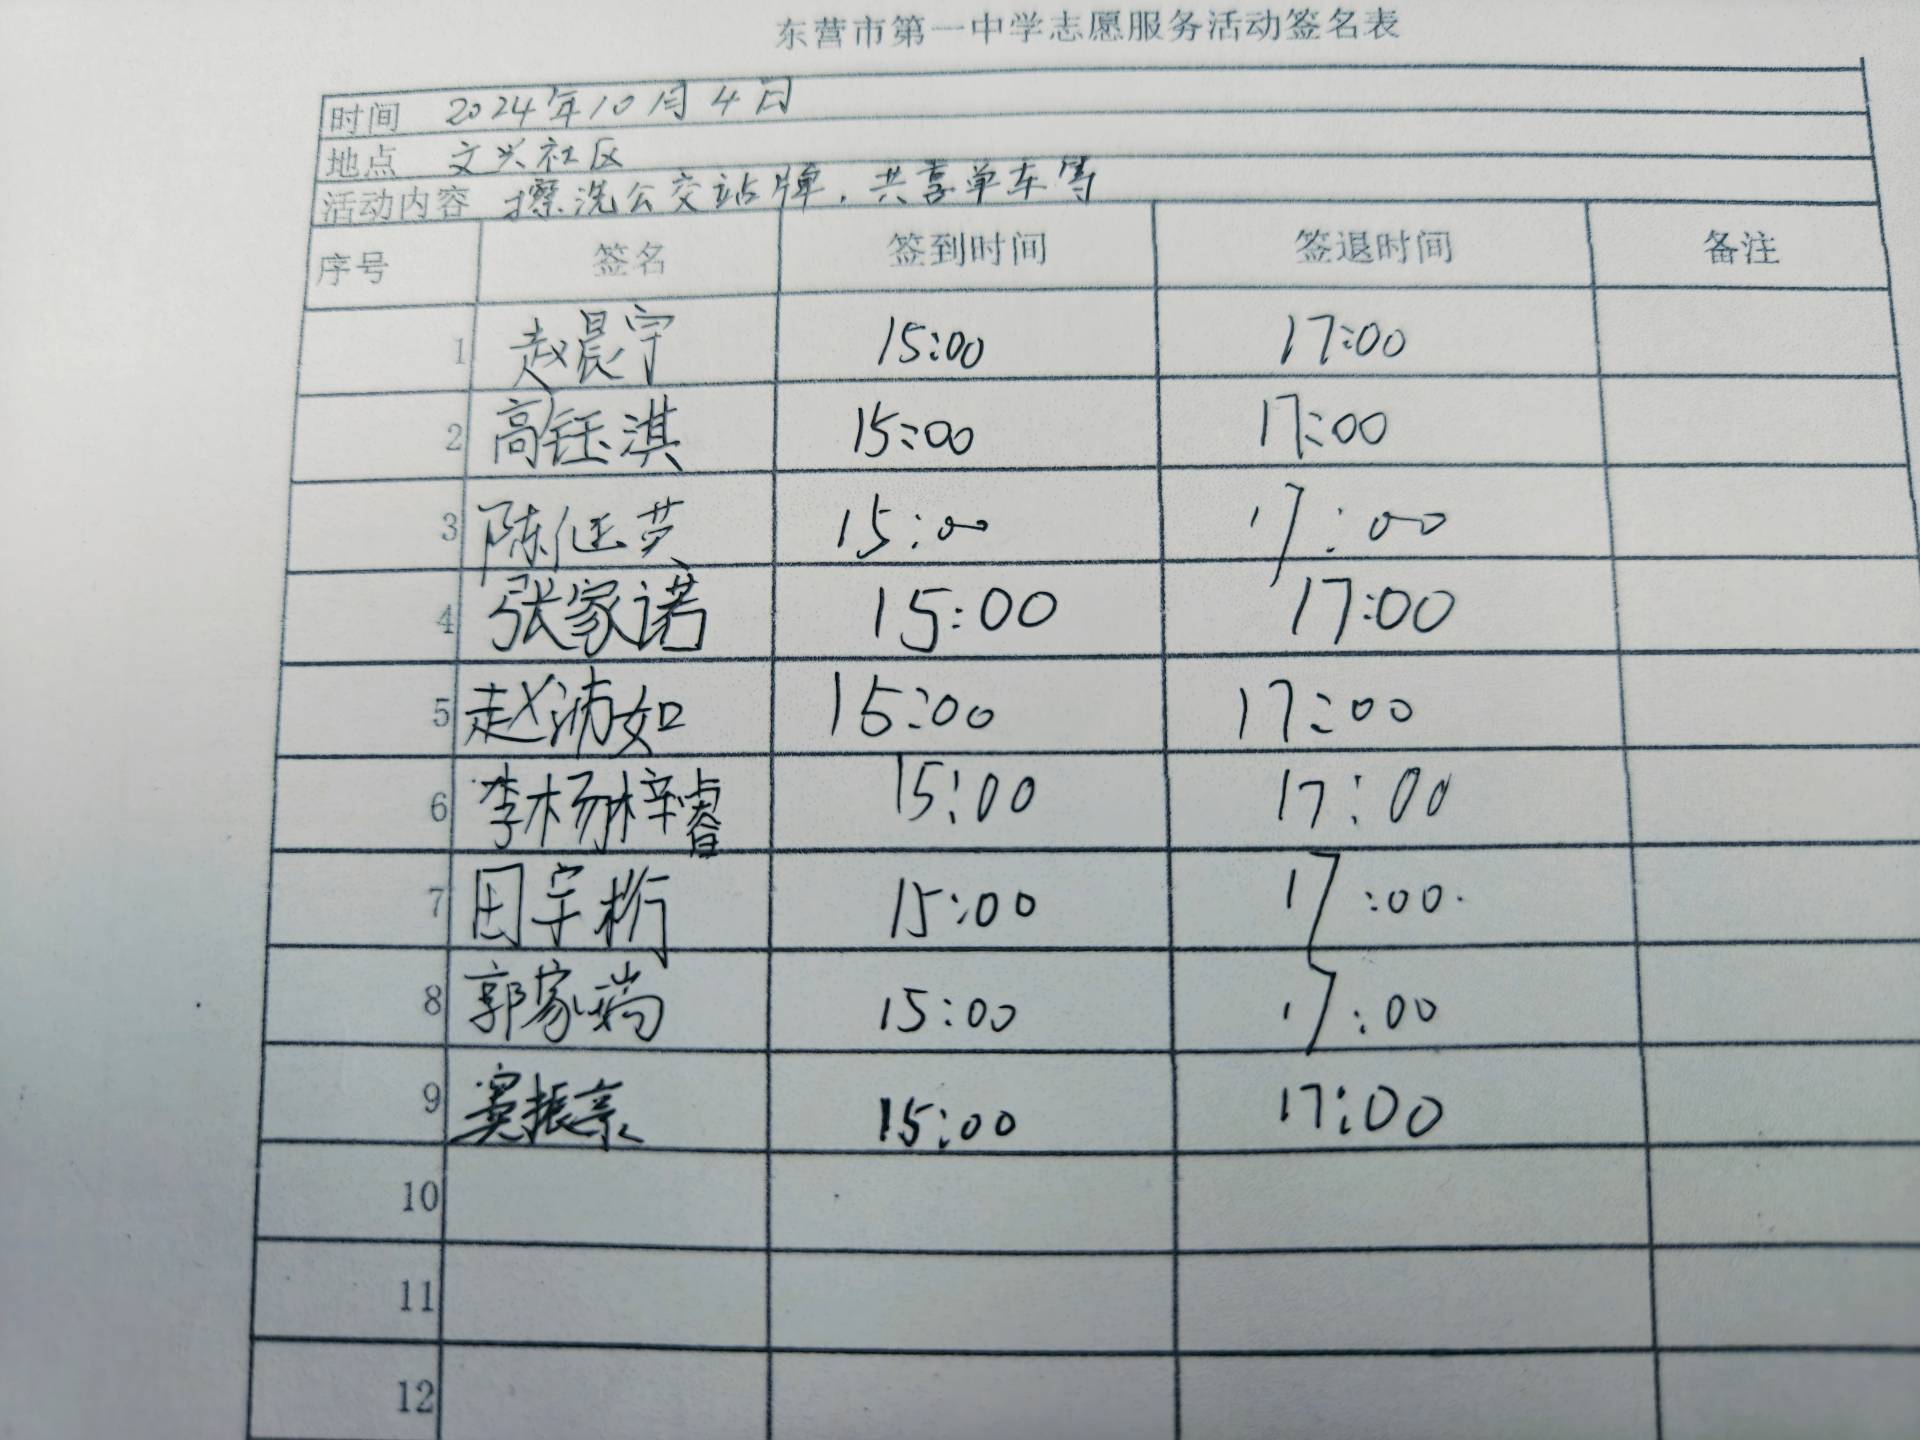 东营市第一中学志愿服务活动签名表
时间 2024年10月4日
地点 文兴社区
活动内容 擦洗公交站牌，共享单车等
序号 签名 签到时间 签退时间 备注
1 赵晨宇 15:00 17:00
2 高钰淇 15:00 17:00
3 陈伍英 15:00 17:00
4 张家诺 15:00 17:00
5 赵沛如 15:00 17:00
6 李杨梓睿 15:00 17:00
7 田宇桁 15:00 17:00
8 郭家瑞 15:00 17:00
9 窦振豪 15:00 17:00
10
11
12